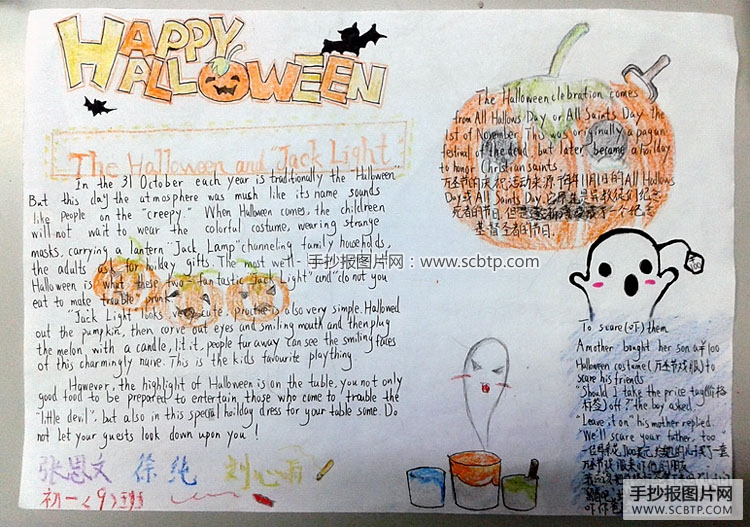 HAPPY
HALLOWEEN
The Halloween and "Jack Light"
In the 31 October each year is traditionally the "Halloween"
But this day the atmosphere was much like its name sounds
like people on the "creepy." When Halloween comes, the childreen
will not wait to wear the colorful costume, wearing strange
masks, carrying a lantern "Jack Lamp" channeling family households,
the adults ask for hoilday gifts. The most well-
Halloween is what these two - fantastic "Jack Light" and "do not you
eat to make trouble" prank.
"Jack Light" looks very cute, practice is also very simple. Hallowed
out the pumpkin, then corve out eyes and smiling mouth and then plug
the melon with a candle, lit it, people far away can see the smiling faces
of this charmingly naive. This is the kids favourite plaything.
However, the highlight of Halloween is on the table, you not only
good food to be prepared to entertain those who come to "trauble the
"little devil", but also in this special hoilday dress for your table some. Do
not let your guests look down upon you !
张思文 徐纯 刘心雨
初一<9>班
The Halloween clebration comes
from All Hallows Day or All Saints Day the
1st of November. This was originally a pagan
festival of the dead but later became a hoilday
to honor Christian saints.
万圣节的庆祝活动来源于每年11月1日的All Hallows
Day或All Saints Day.
死者的节日，但
基督圣者的节日.
To scare(吓) them
A mother bought her son a ¥100
Halloween costume(万圣节戏服) to
scare his friends
"Should I take the price tag(价格
标签) off?" the boy asked.
"Leave it on" his mother replied.
We'll scare your father, too
一位母亲花100美元给她的儿子买了一套
万圣节戏服来吓他的朋友
手抄报图片网：www.scbtp.com
手抄报图片网
WWW.SCBTP.COM